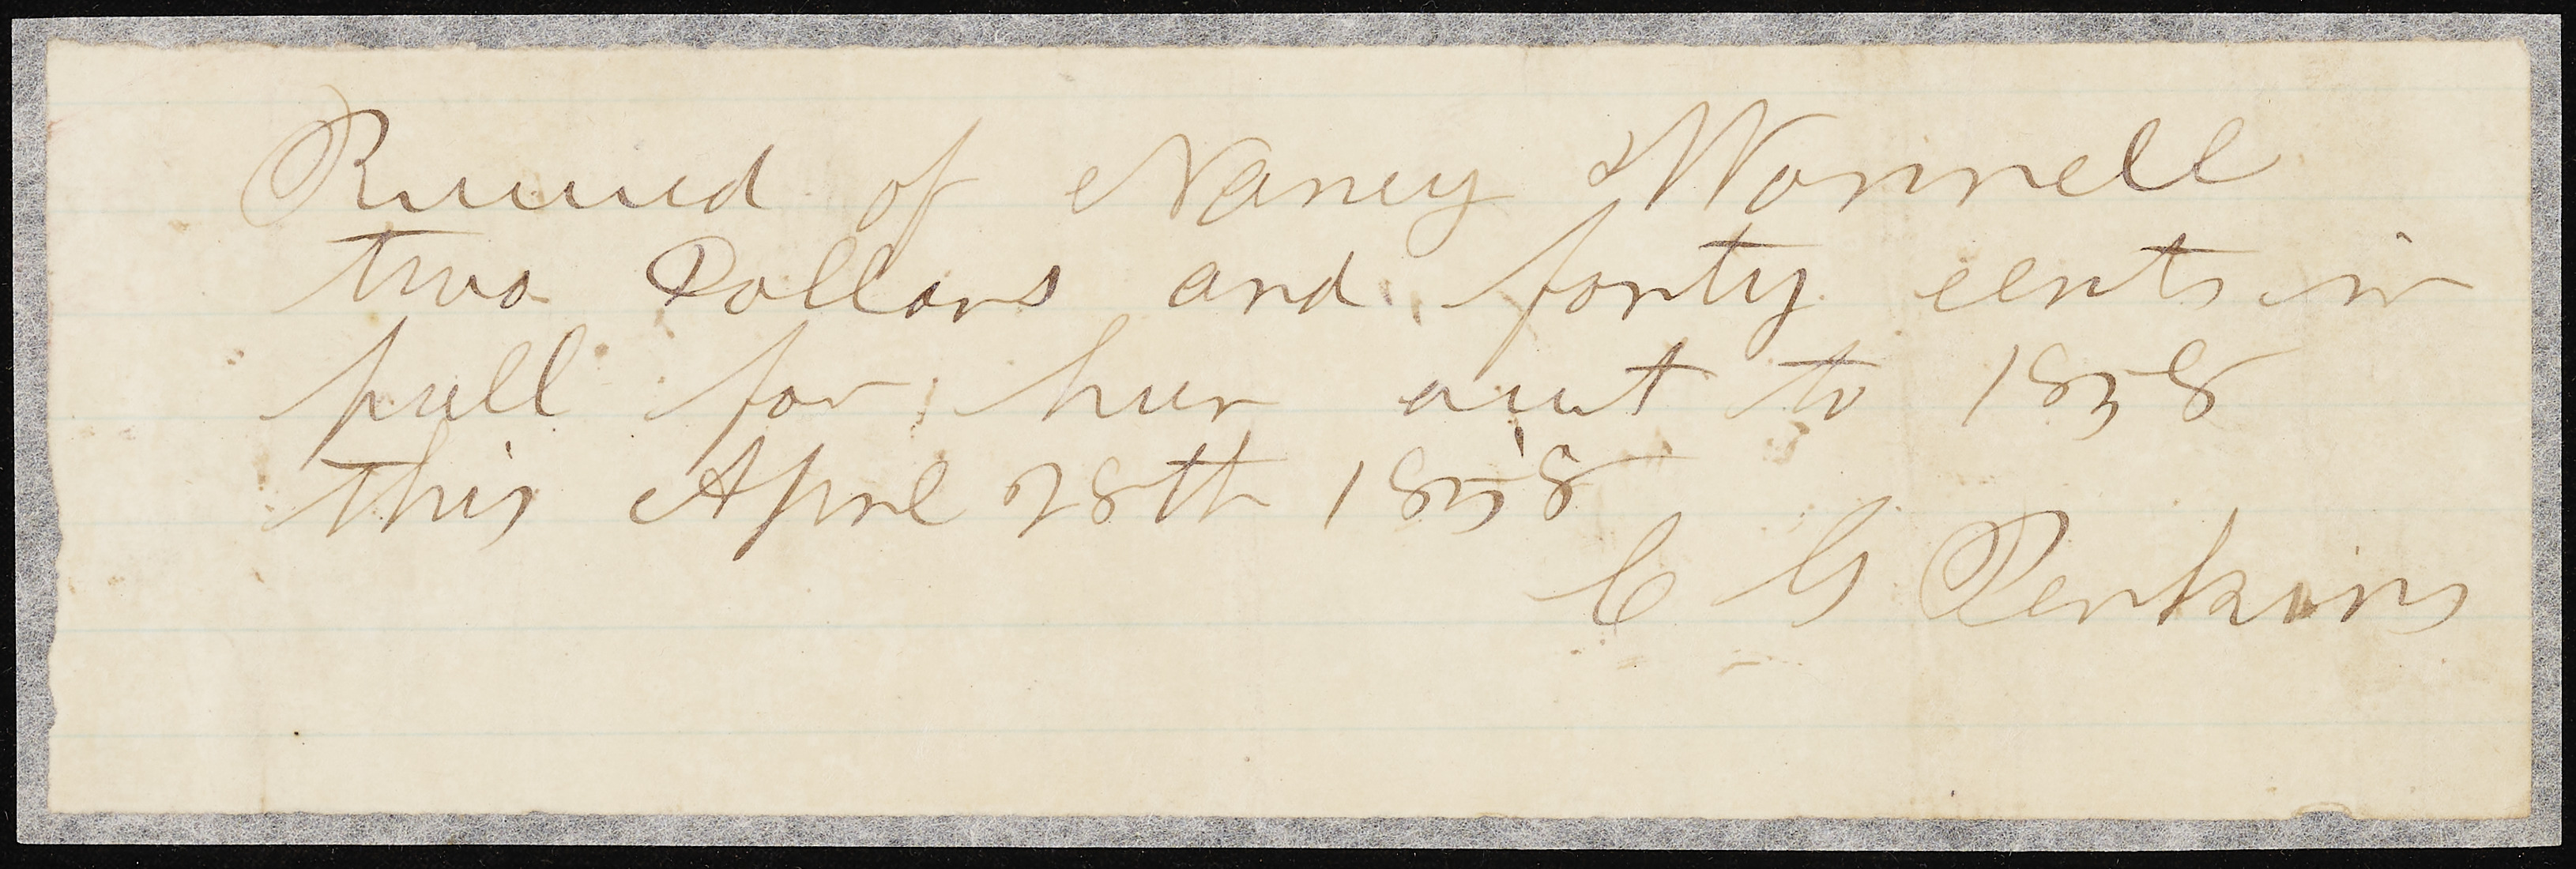 Received of Nancy Wonnell
two Dollars and forty cents in
full for hur acut to 1858
this Aprel 28th 1858
C G Perkins